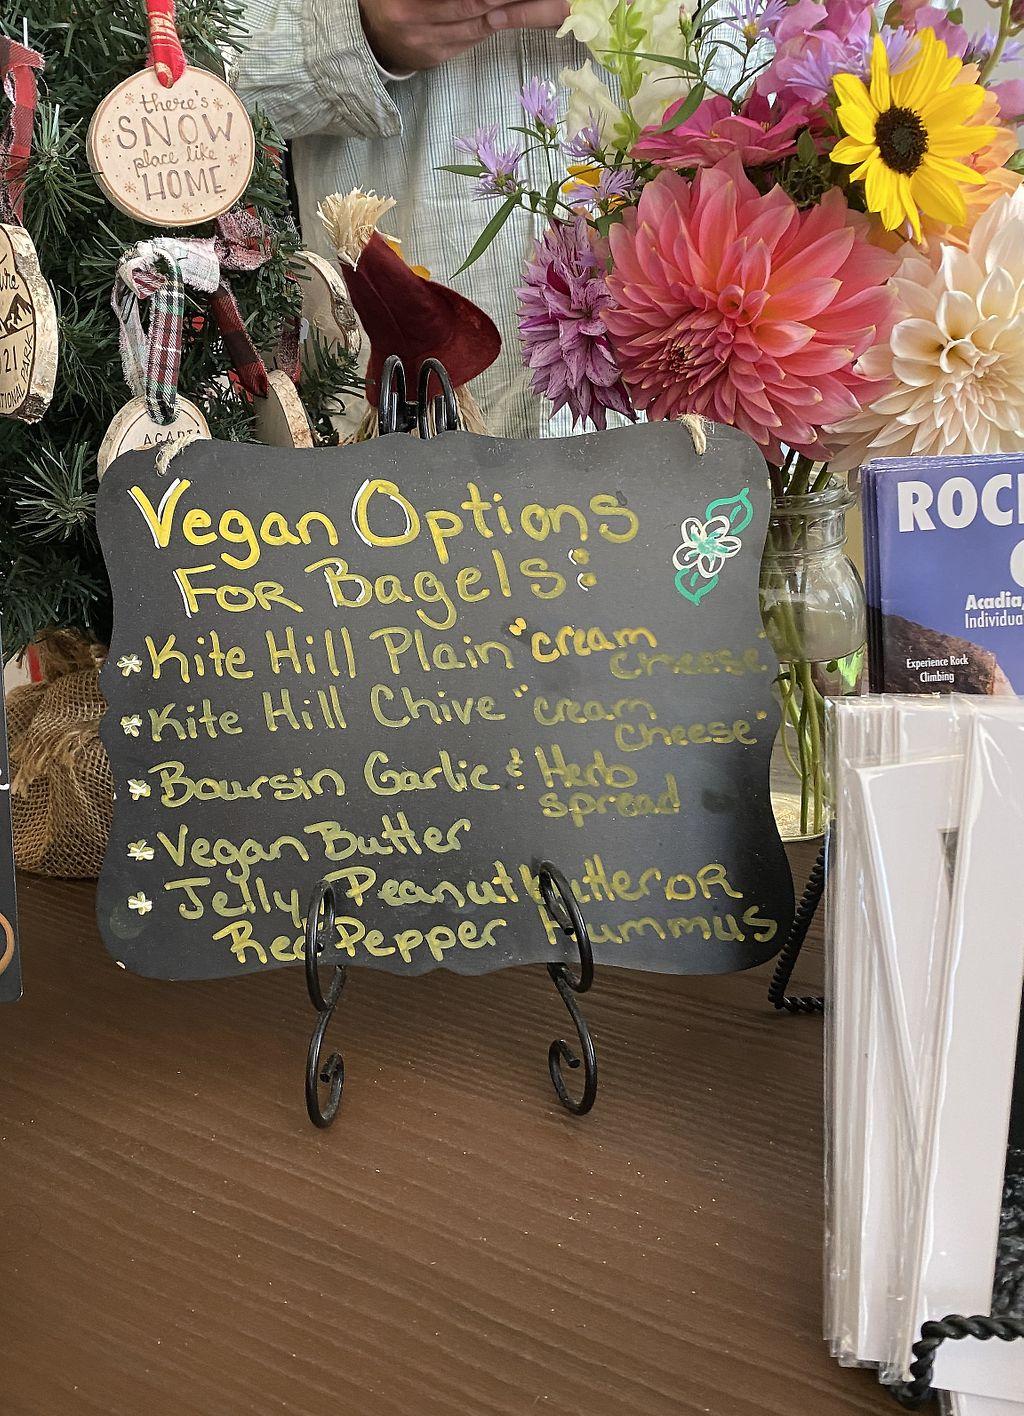 there's
SNOW
place like
HOME
21
ACADIA
Vegan Options
For Bagels:
Kite Hill Plain "cream
cheese"
Kite Hill Chive "cream
Cheese"
Boursin Garlic & Herb
spread
Vegan Butter
Jelly Peanut butter OR
Red Pepper Hummus
ROC
Acadia,
Individua
Experience Rock
Climbing